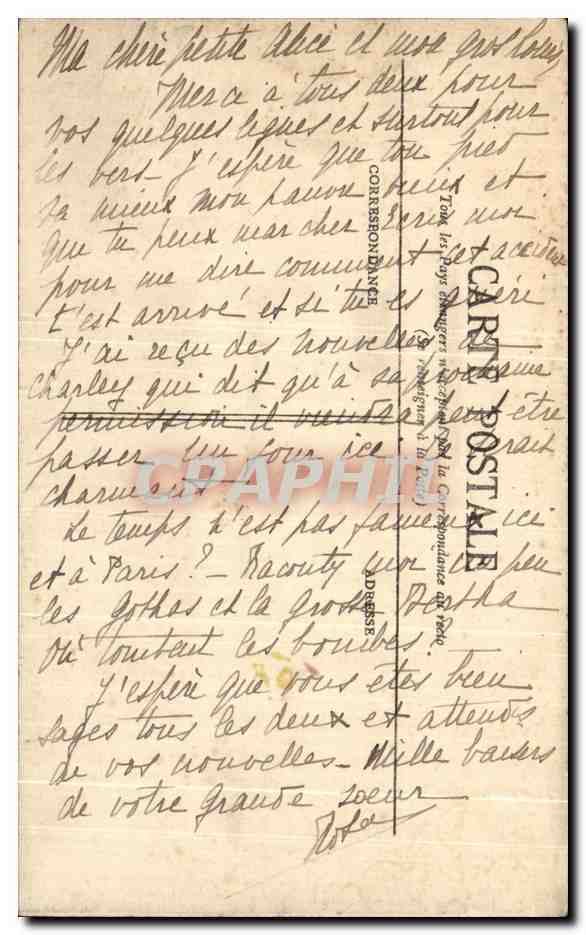 Ma chère petite Alice et mon gros
Merci à tous deux pour
vos quelques lignes et surtout pour
les vers - J'espère que ton pied
va mieux mon pauvre vieux et
que tu peux marcher Ecris moi
pour me dire comment cet accident
t'est arrivé et si tu es guéri
J'ai reçu des nouvelles de
Charley qui dit qu'à sa prochaine
permission il viendra peut-être
passer un jour ici, serait
charmant
Le temps n'est pas fameux ici
et à Paris? - Racontez moi un peu
les Gothas et la grosse Bertha
Où tombent les bombes?
J'espère que vous êtes bien
sages tous les deux et attends
de vos nouvelles - Mille baisers
de votre grande soeur
Rosa
CARTE POSTALE
Tous les Pays étrangers n'acceptent pas la Correspondance au recto
(Se renseigner à la Poste)
CORRESPONDANCE
ADRESSE
CPARAMA